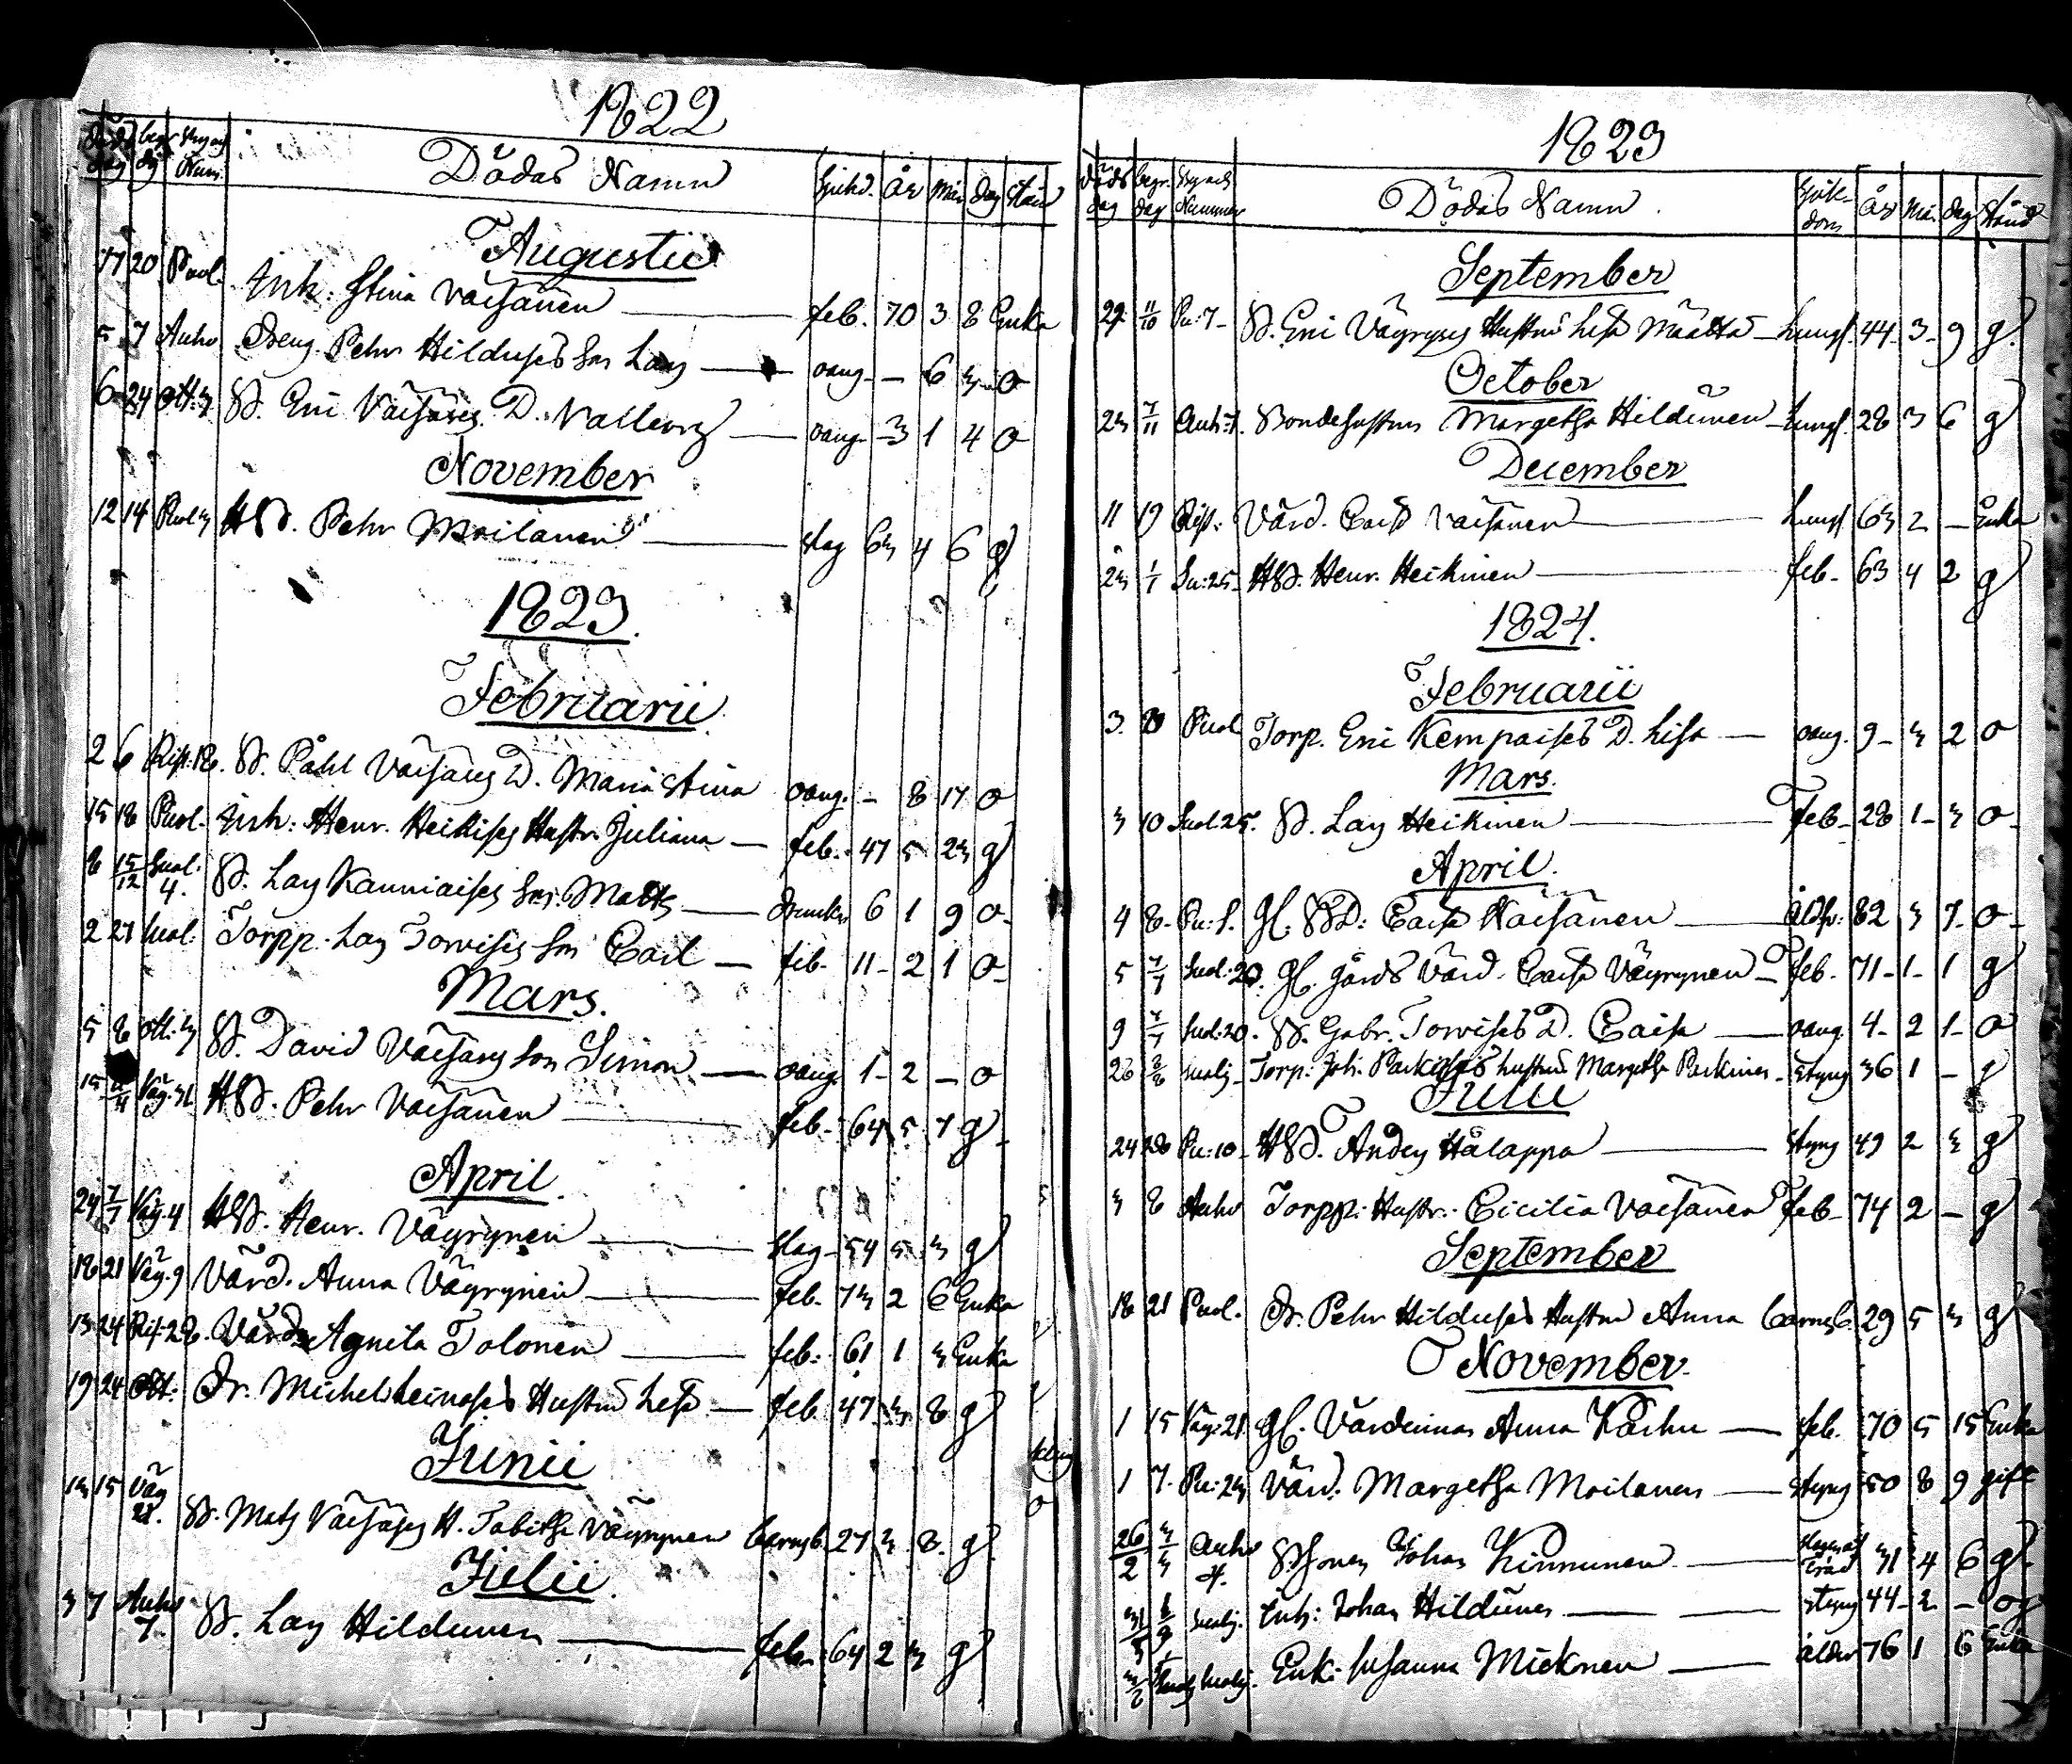 1822
Döds dag begr. dag Byns Num. Dödas Namn Sjukd. År Mån Dag Stånd
Augustii
17 20 Puol. Inh: Stina Väisänen feb. 70 3 8 Enka
5 7 Auho Dreng Pehr Hildusses Son Lars oang. - 6 3 o
6 24 Ott:3 B. Eric Väisäses D. Valborg oang. 3 1 4 o
November
12 14 Puol3 HB. Pehr Moilanen slag 63 4 6 g
1823.
Februarii
2 6 Rist.18. B. Påhl Väisäses D. Maria Stina oang. - 8 17 o
15 18 Puol. Inh: Henr. Heikises Hustr. Juliana feb. 47 5 23 g
8 15/12 Suol: 4. B. Lars Kanniaises Son Matts Drunkn 6 1 9 o
2 27 Suol: Torpp. Lars Torvises Son Carl feb. 11 2 1 o
Mars.
5 8 Ott:3 B. David Väisäses Son Simon oang. 1 2 - o
15 Väy.31 HB. Pehr Väisänen feb. 64 5 7 g
April.
24 7/7 Väy.4 HB. Henr. Väyrynen slag 54 5 3 g
18 21 Väy.9 Värd. Anna Väyrynen feb. 73 2 6 Enka
13 24 Rist.28. Värd. Agneta Tolonen feb. 61 1 3 Enka
19 24 Ott: Dr. Michel Leinoises Hustru Lisa feb 47 3 8 g
Junii
13 15 Väy 21. B. Mats Väisäses H. Tabitha Väyrynen barnsb. 27 3 8 g
Julii
3 7 Auho 7. B. Lars Hildunen feb. 64 2 3 g
1823
Döds dag begr. dag Byns Nummer Dödas Namn Sjukdom År Mån. Dag Stånd
September
29 11/10 Pu:7 B. Eric Väyryses Hustru Lisa Määttä Lungs. 44 3 9 g
October
23 7/11 Auh:7. Bondehustru Margetha Hildunen Lungs. 28 3 6 g
December
11 19 Rist: Värd. Caisa Väisänen Lungs 63 2 - Enka
23 1/1 Su:25 HB. Henr. Heikinen feb. 63 4 2 g
1824.
Februarii
3. Puol Torp. Eric Kempaises D. Lisa oang. 9 3 2 o
Mars.
3 10 Suol.25. B. Lars Heikinen feb. 28 1 3 o
April.
4 8 Pu: 1. Gl. BD: Caisa Väisänen åldr: 82 3 7 o
5 7/7 Suol:20. Gl. gårds Värd. Caisa Väyrynen feb. 71 1 1 g
9 7/7 Suol:20. B. Gabr. Torvises D. Caisa oang. 4 2 1 o
26 2/8 Melaj. Torp. Joh. Parkises hustru Margetha Parkinen styng 36 1 - g
Julii
24 28 Pu:10 HB. Anders Hålappa styng 49 2 3 g
3 8 Auho Torpp: Hustr. Cicilia Väisänen feb. 74 2 - g
September
18 21 Puol. Dr. Pehr Hildusses Hustru Anna barnsb. 29 5 3 g
November.
1 15 Väy.21 Gl. Värdinnan Anna Karhu feb. 70 5 15 Enka
1 7 Pu:23 Värd. Margetha Moilanen styng 50 8 9 gift
26/2 3/3 Auho 4. Bsonen Johan Kinnunen Slagen af träd 31 4 6 g
31/3 Melaj. Inh: Johan Hildunen styng 44 2 - og
Melaj. Enk: Susanna Mickonen ålder 76 1 6 Enka